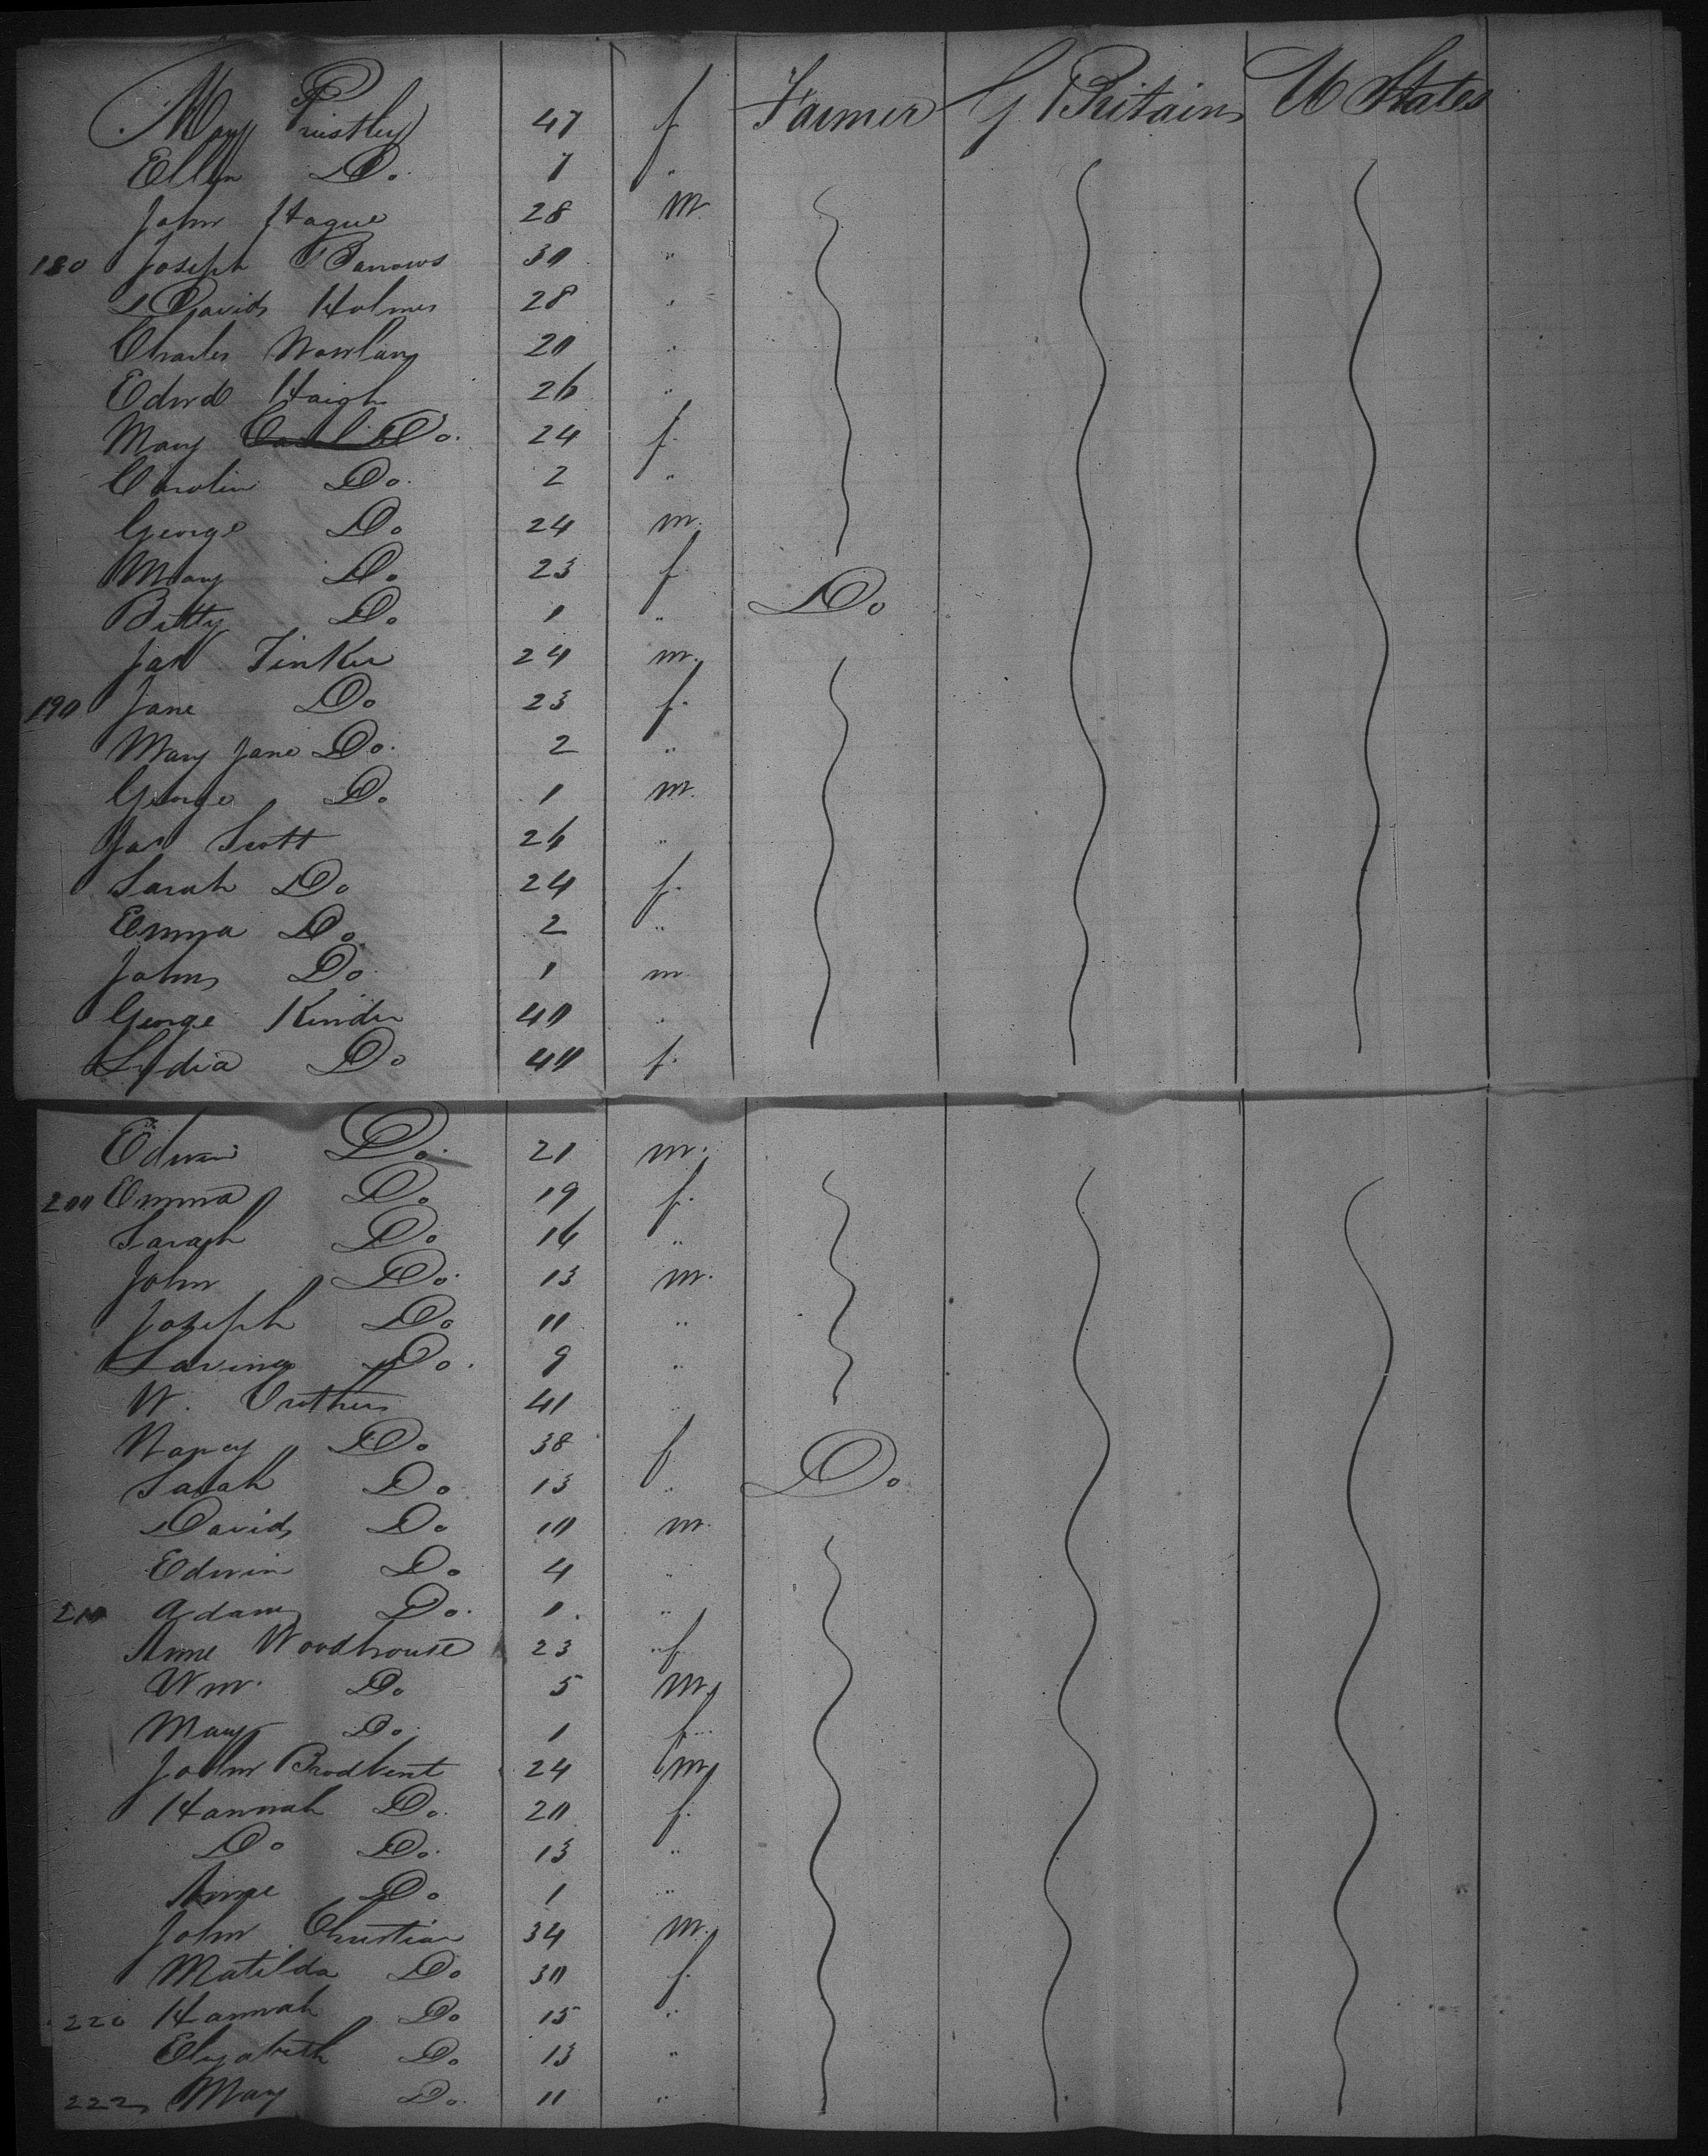 Mary Pristley 47 f Farmer G Britain U States
Ellen Do. 7 "
John Hague 28 m
180 Joseph Barrows 30 "
David Holmes 28 "
Charles Nowlan 20 "
Edwd Haigh 26 "
Mary Do. 24 f.
Carolin Do. 2 "
George Do 24 m.
Mary Do 23 f
Bitty Do 1 " Do
Jas Tinker 24 m.
190 Jane Do 23 f.
Mary Jane Do. 2 "
George Do. 1 m.
Jas Scott 26 "
Sarah Do 24 f.
Emma Do 2 "
John Do 1 m
George Kinder 40 "
Lydia Do 40 f.
Edwin Do. 21 m.
200 Emma Do 19 f.
Sarah Do 16 "
John Do. 13 m.
Joseph Do 11 "
Lavina Do. 9 "
W. Crothers 41 "
Nancy Do. 38 f
Sarah Do 13 " Do.
David Do 10 m.
Edwin Do. 4 "
210 Adam Do. 1. "
Anne Woodhouse 23 f
Wm. Do 5 m.
Mary Do. 1 f.
John Brodbent 24 m
Hannah Do. 20 f.
Do Do. 13 "
Anne Do. 1 "
John Christian 34 m.
Matilda Do 30 f.
220 Hannah Do 15 "
Elizabeth Do 13 "
222 Mary Do. 11 "